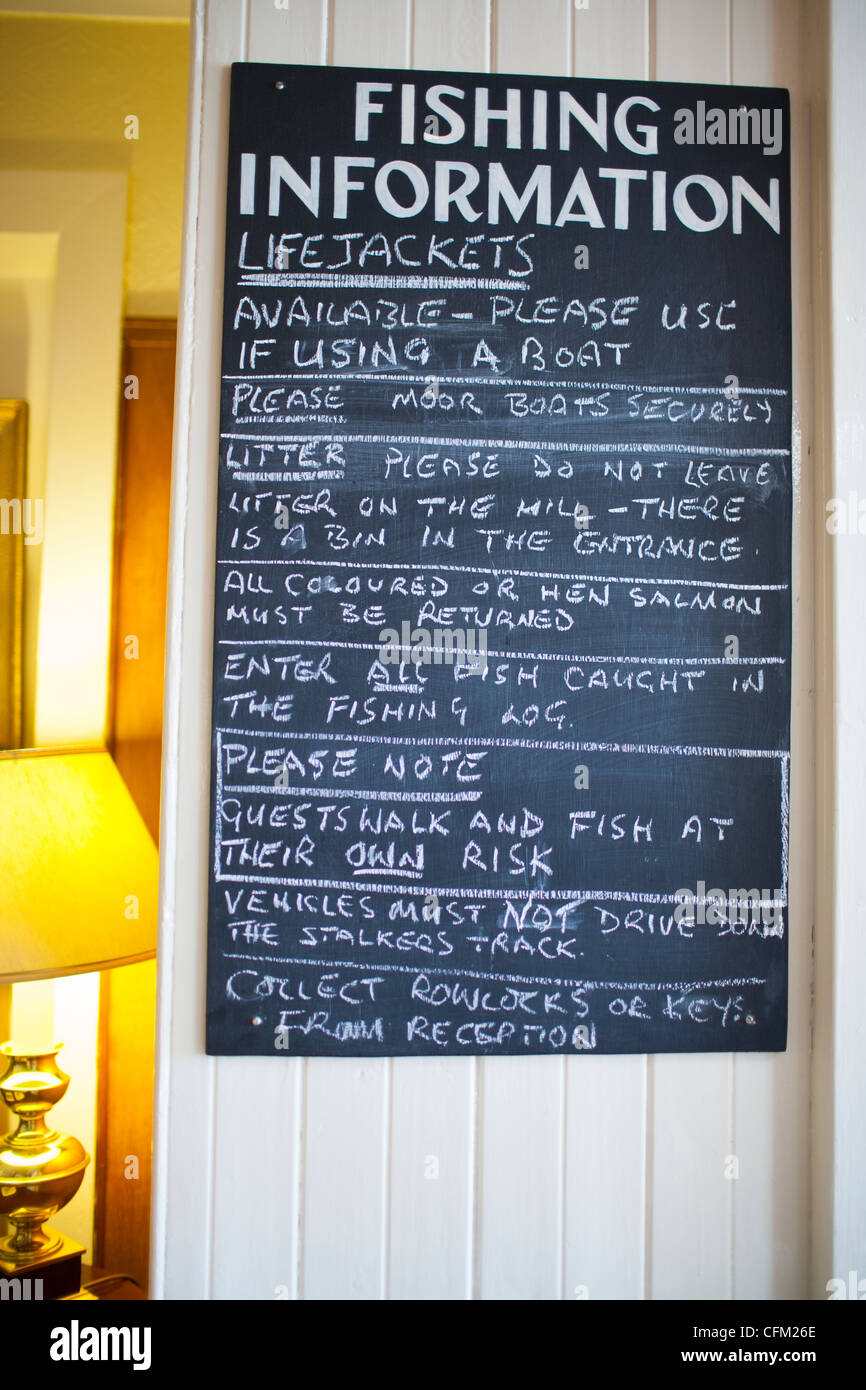 FISHING
INFORMATION
LIFEJACKETS
AVAILABLE – PLEASE USE
IF USING A BOAT
PLEASE MOOR BOATS SECURELY
LITTER PLEASE DO NOT LEAVE
LITTER ON THE HILL – THERE
IS A BIN IN THE ENTRANCE.
ALL COLOURED OR HEN SALMON
MUST BE RETURNED
ENTER ALL FISH CAUGHT IN
THE FISHING LOG.
PLEASE NOTE
GUESTS WALK AND FISH AT
THEIR OWN RISK
VEHICLES MUST NOT DRIVE DOWN
THE STALKERS TRACK.
COLLECT ROWLOCKS OR KEYS
FROM RECEPTION
alamy
Image ID: CFM26E
www.alamy.com